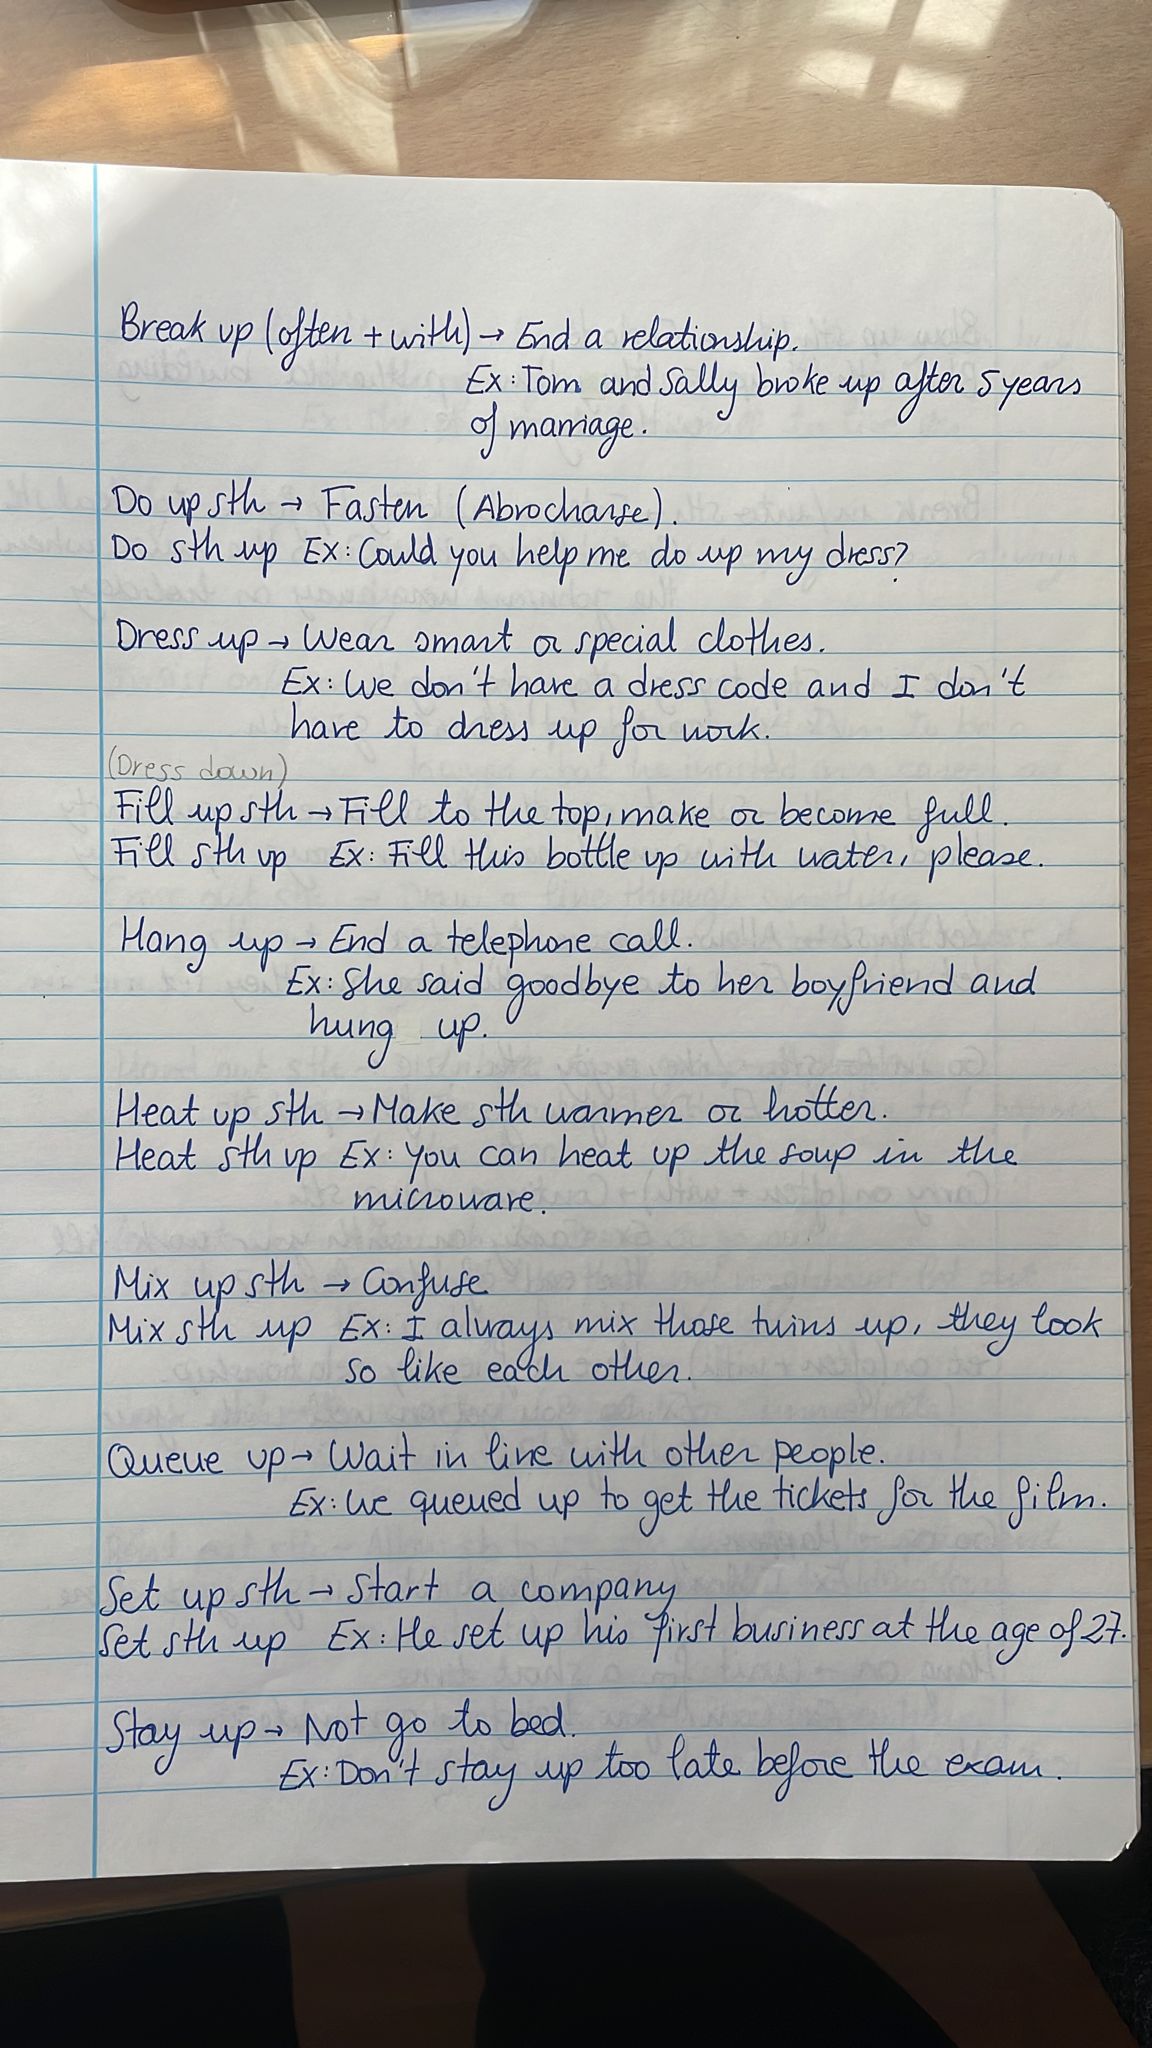 Break up (often + with) → End a relationship.
Ex: Tom and Sally broke up after 5 years
of marriage.
Do up sth → Fasten (Abrocharse).
Do sth up Ex: Could you help me do up my dress?
Dress up → Wear smart or special clothes.
Ex: We don't have a dress code and I don't
have to dress up for work.
(Dress down)
Fill up sth → Fill to the top, make or become full.
Fill sth up Ex: Fill this bottle up with water, please.
Hang up → End a telephone call.
Ex: She said goodbye to her boyfriend and
hung up.
Heat up sth → Make sth warmer or hotter.
Heat sth up Ex: You can heat up the soup in the
microware.
Mix up sth → Confuse
Mix sth up Ex: I always mix those twins up, they look
so like each other.
Queue up → Wait in line with other people.
Ex: We queued up to get the tickets for the film.
Set up sth → Start a company
Set sth up Ex: He set up his first business at the age of 27.
Stay up → Not go to bed.
Ex: Don't stay up too late before the exam.